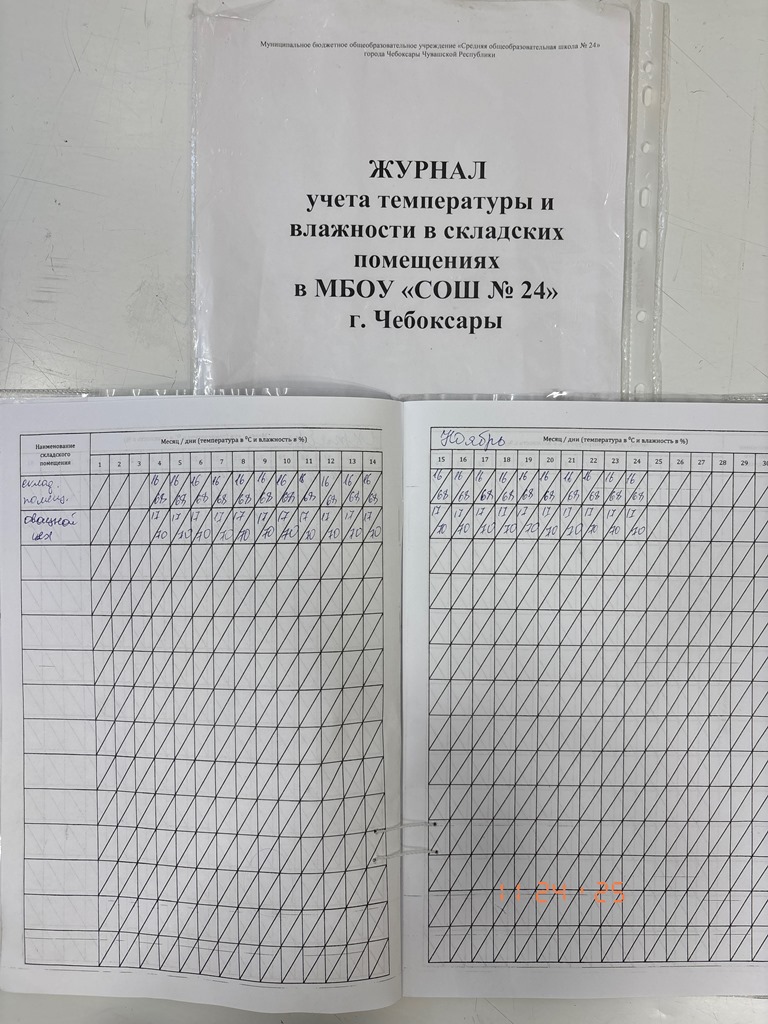 Муниципальное бюджетное общеобразовательное учреждение «Средняя общеобразовательная школа № 24»
города Чебоксары Чувашской Республики
ЖУРНАЛ
учета температуры и
влажности в складских
помещениях
в МБОУ «СОШ № 24»
г. Чебоксары
Наименование
складского
помещения
Месяц / дни (температура в °C и влажность в %)
1 2 3 4 5 6 7 8 9 10 11 12 13 14
склад. 16 16 16 16 16 16 16 16 16 16 16
помещ. 68 68 68 68 68 68 68 68 68 68 68
овощной 17 17 17 17 17 17 17 17 17 17 17
цех 70 70 70 70 70 70 70 70 70 70 70
Ноябрь Месяц / дни (температура в °C и влажность в %)
15 16 17 18 19 20 21 22 23 24 25 26 27 28 29 30
16 16 16 16 16 16 16 16 16 16
68 68 68 68 68 68 68 68 68 68
17 17 17 17 17 17 17 17 17 17
70 70 70 70 70 70 70 70 70 70
11 24 '25